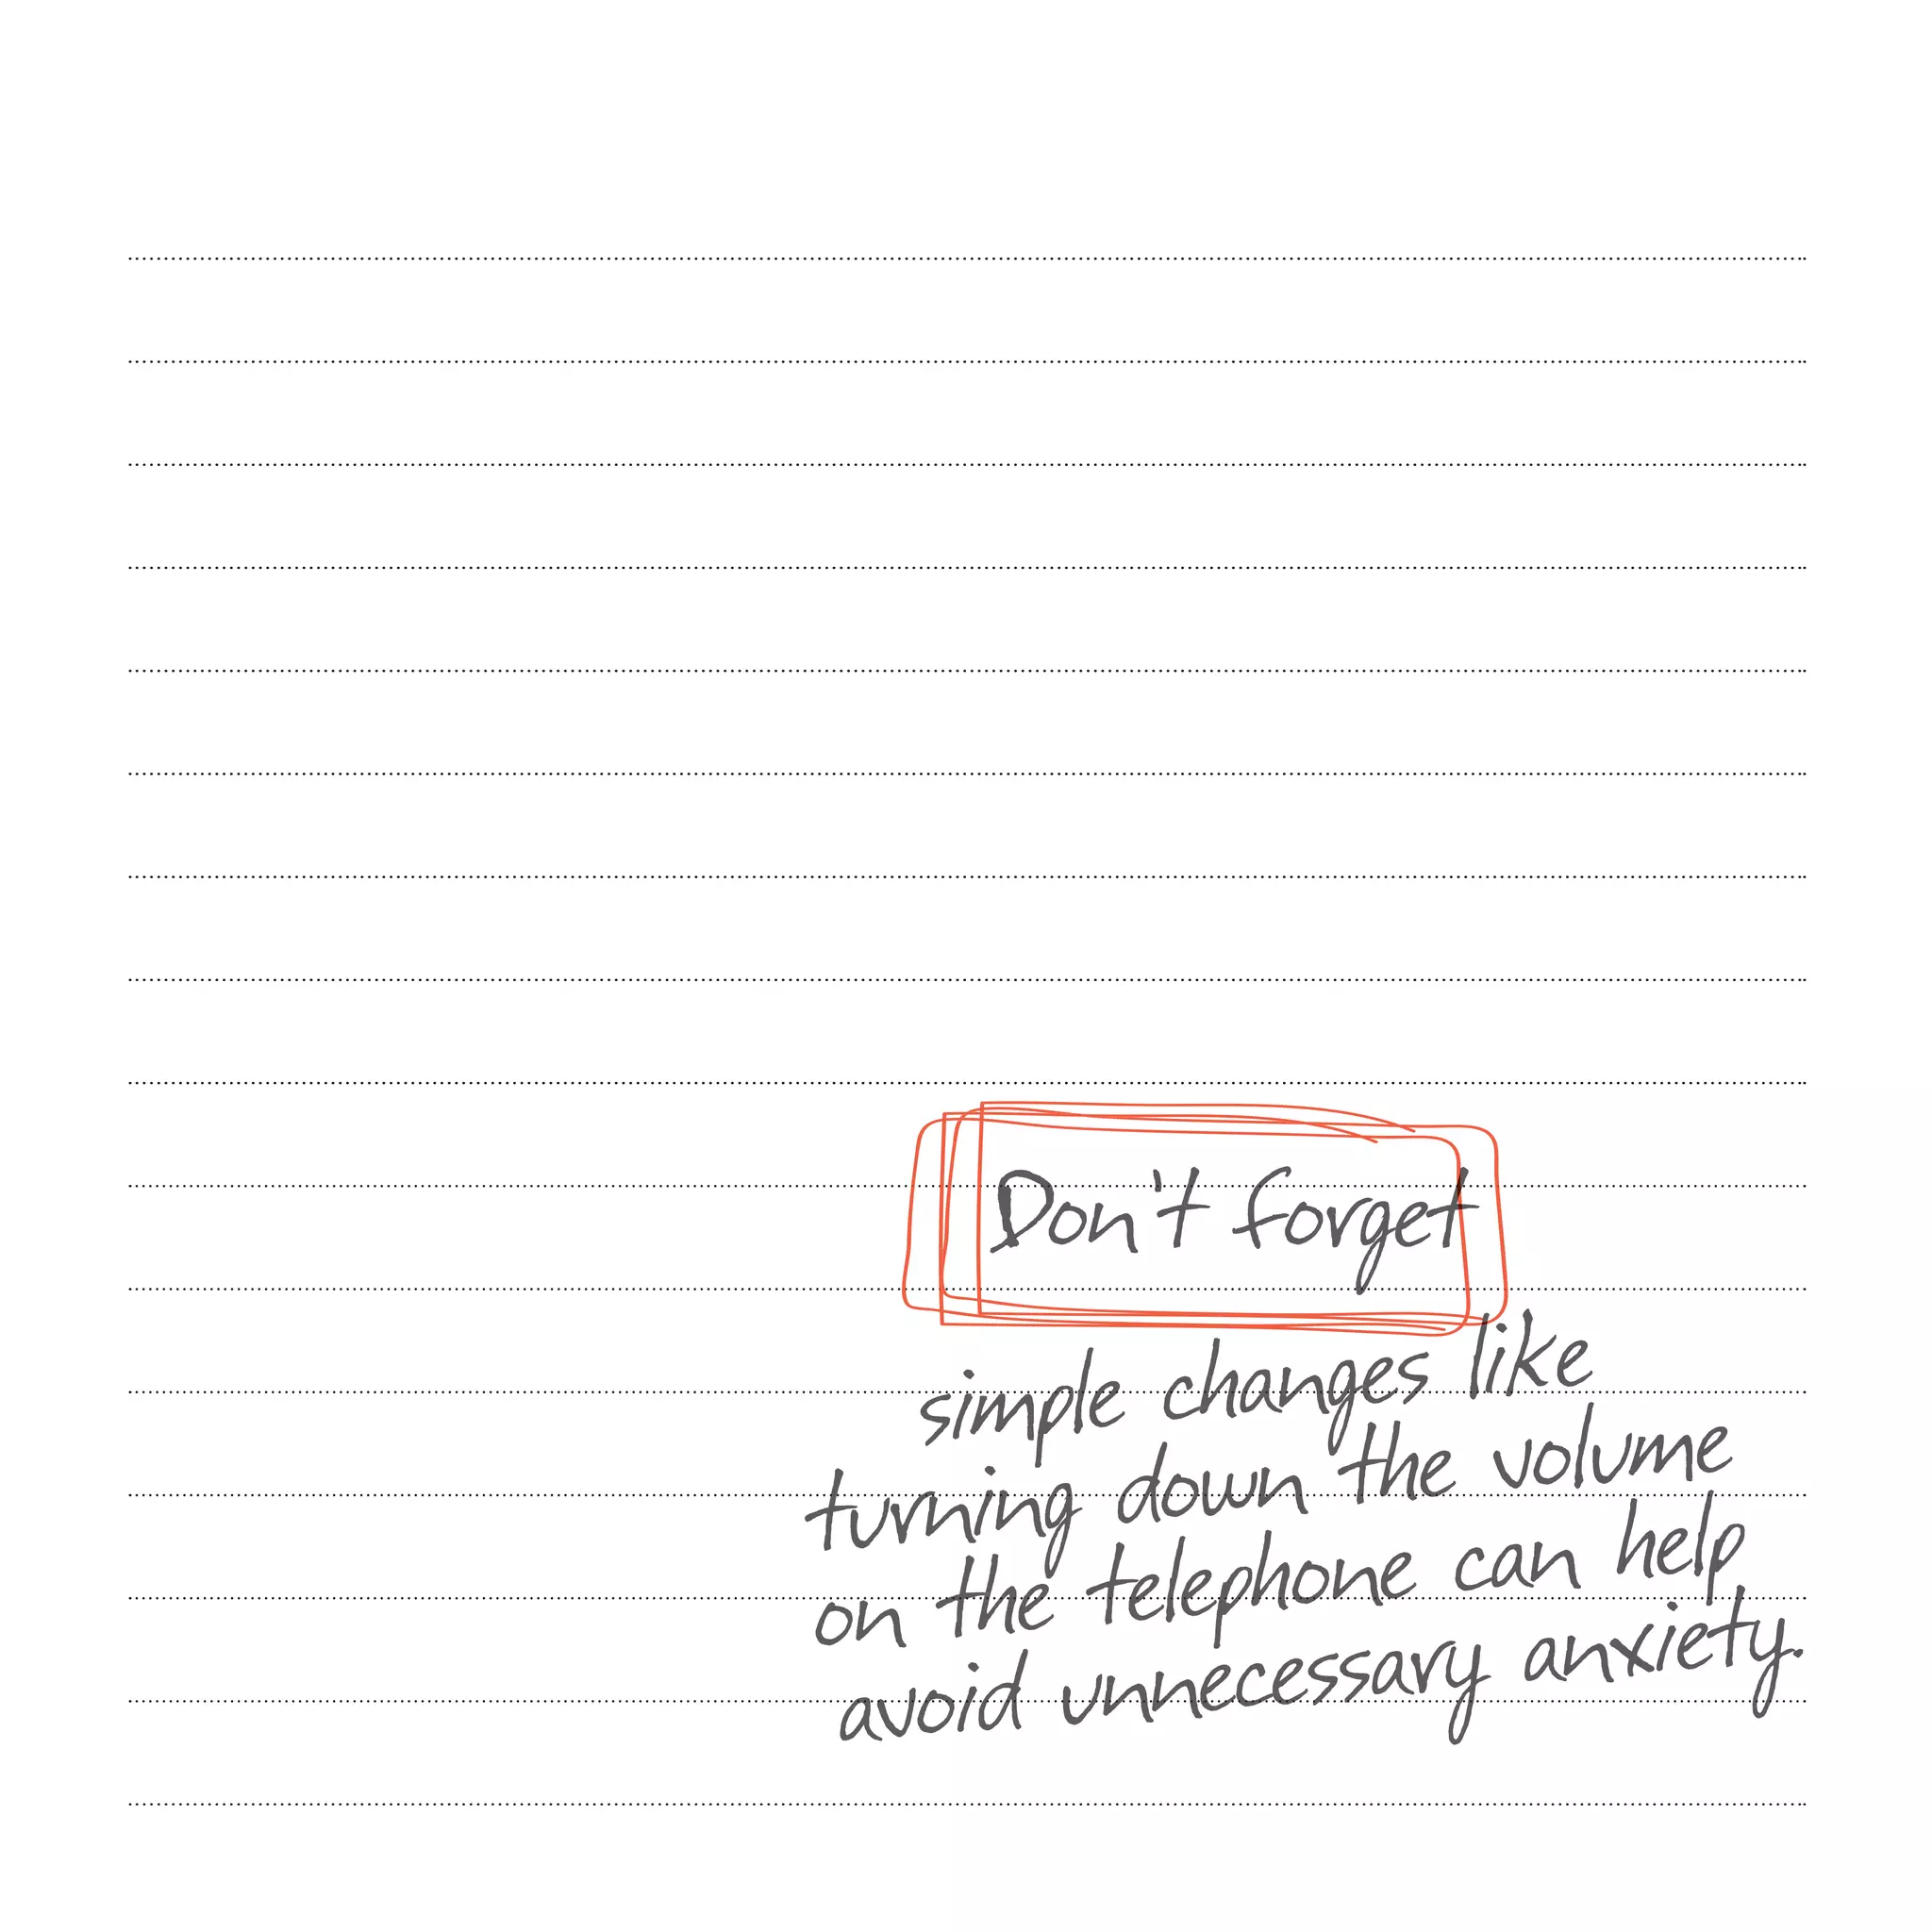 Don't forget
simple changes like
turning down the volume
on the telephone can help
avoid unnecessary anxiety.